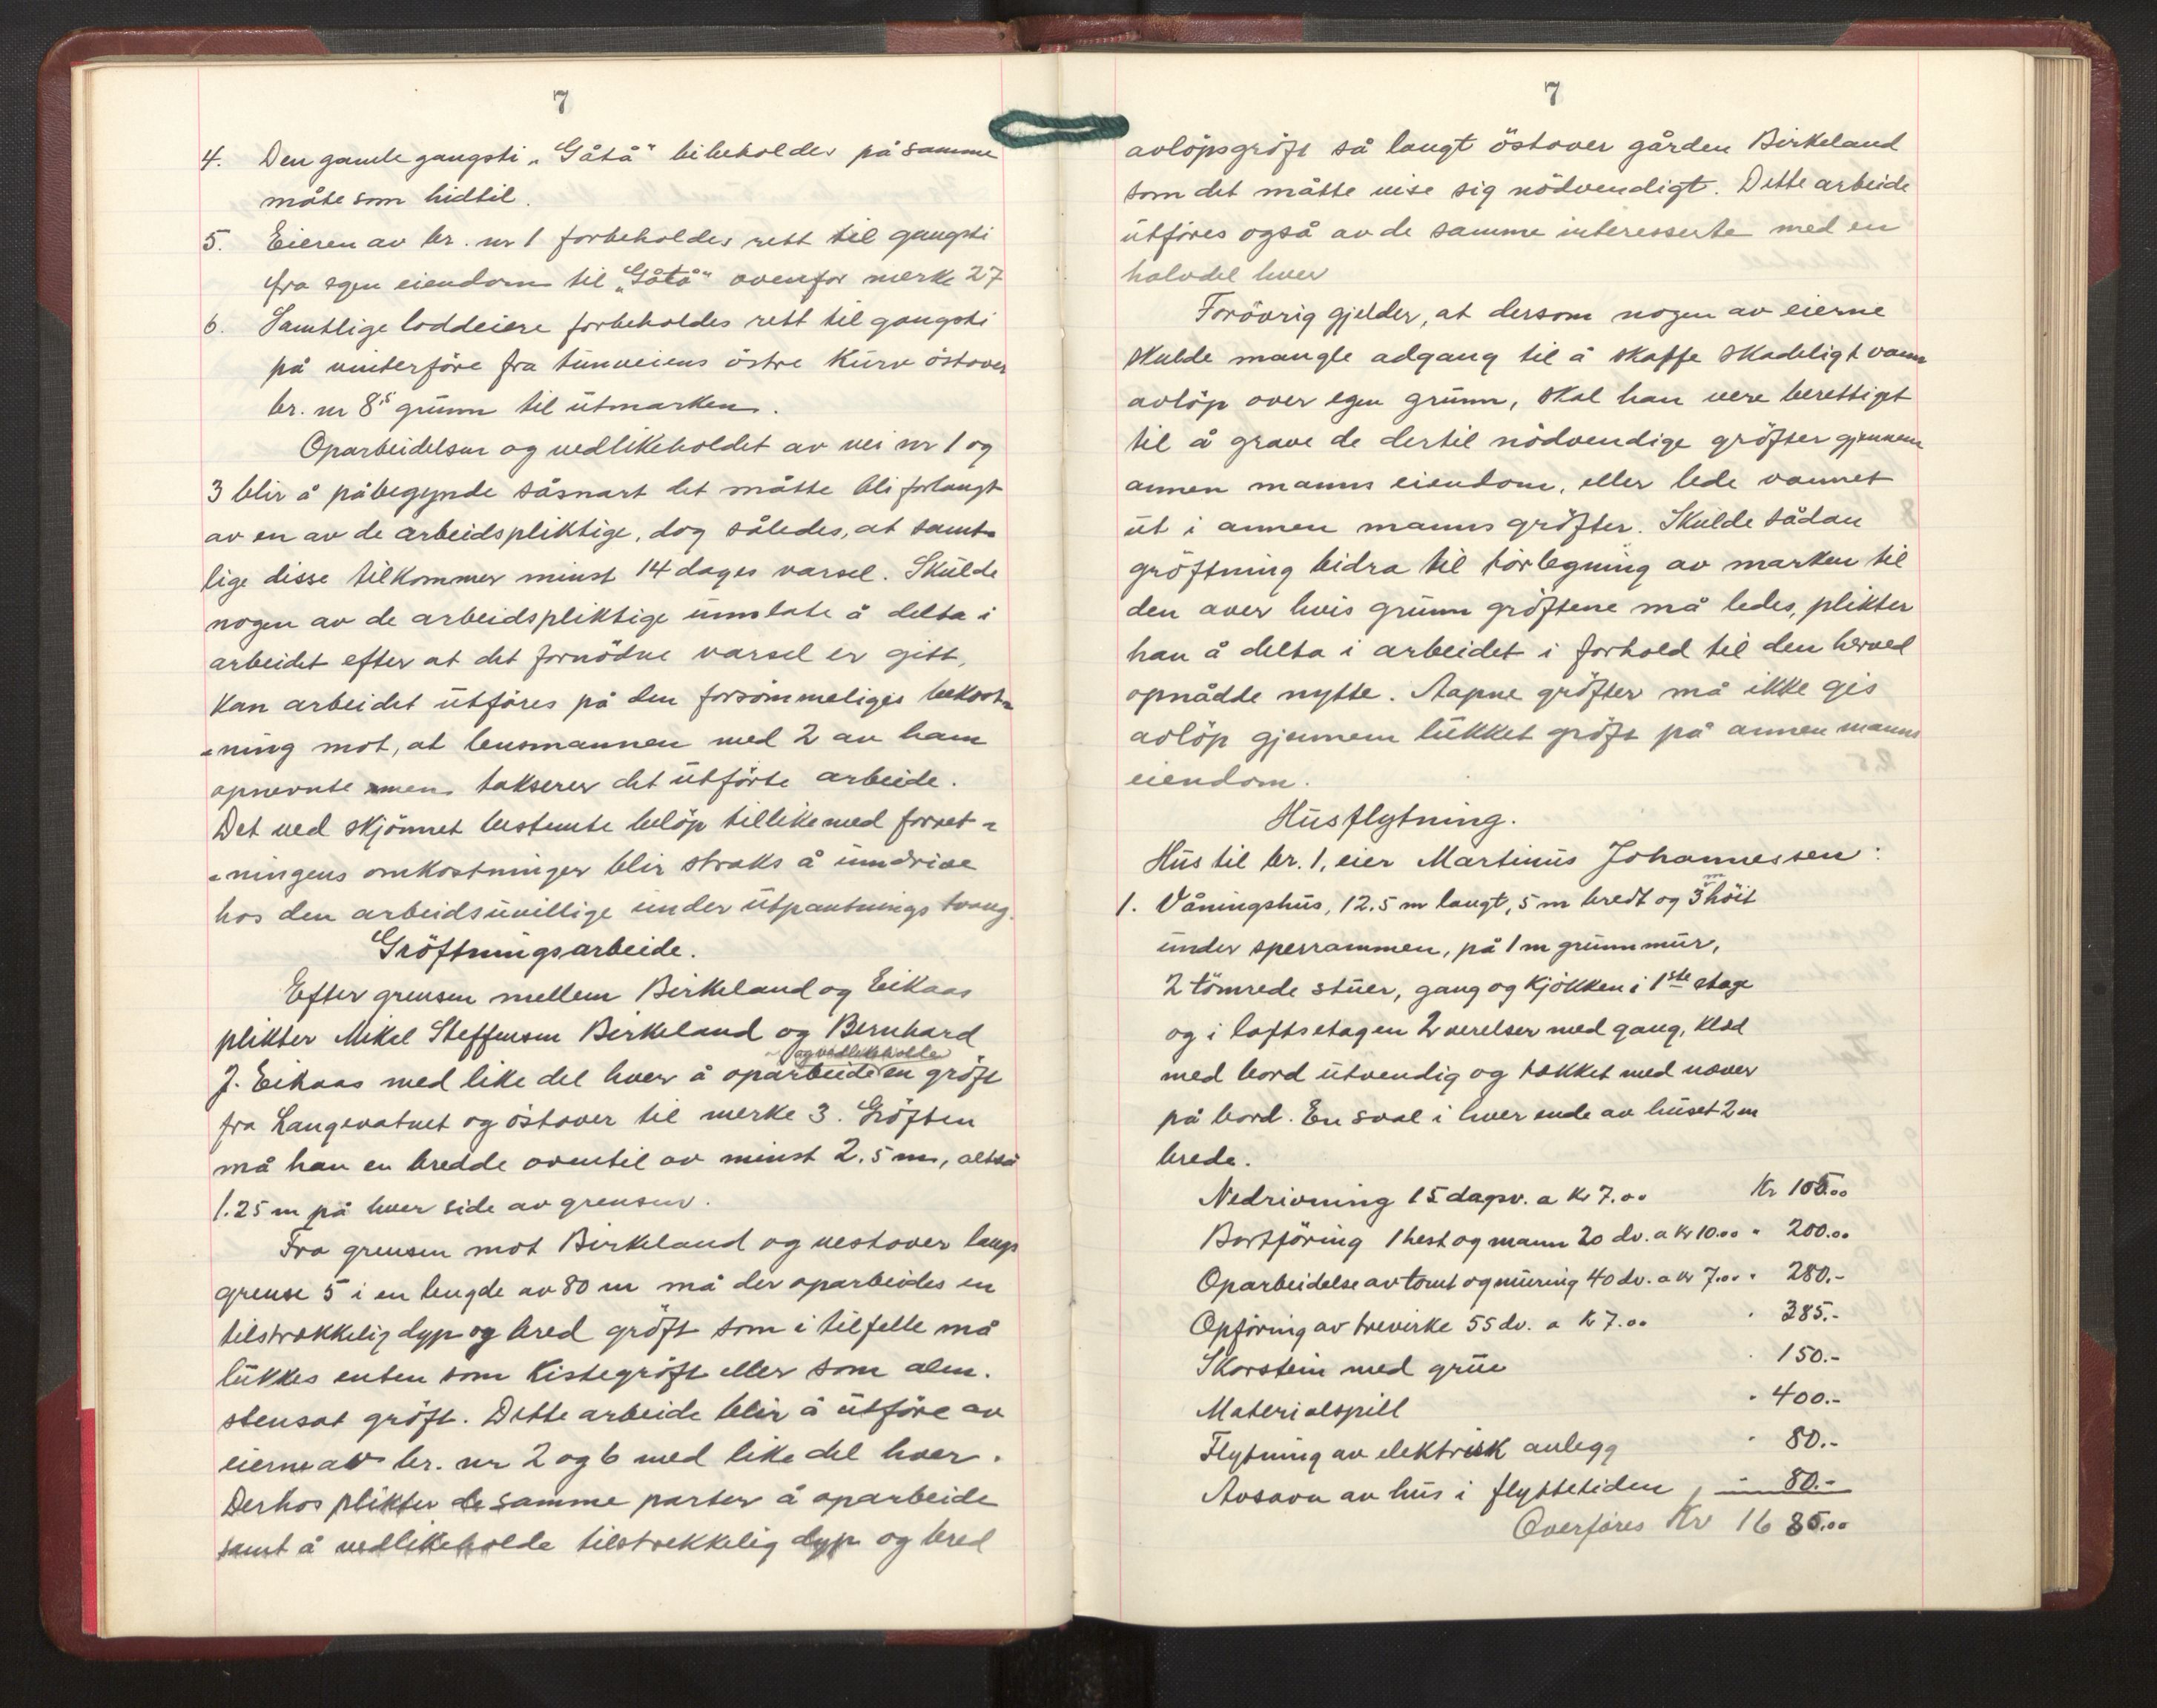 7
4. Den gamle gangsti „Gåtå“ bibeholdes på samme
måte som hidtil.
5. Eieren av br. nr 1 forbeholdes rett til gangsti
fra egen eiendom til „Gåtå“ ovenfor merke 27
6. Samtlige loddeiere forbeholdes rett til gangsti
på vinterföre fra tunveiens östre Kurv östover
br. nr 8's grunn til utmarken.
Oparbeidelsen og vedlikeholdet av vei nr 1 og
3 blir å påbegynde såsnart det måtte bli forlangt
av en av de arbeidspliktige, dog således, at samt-
lige disse tilkommer minst 14 dages varsel. Skulde
nogen av de arbeidspliktige unnlate å delta i
arbeidet efter at det fornödne varsel er gitt,
kan arbeidet utföres på den forsömmeliges bekost-
-ning mot, at lensmannen med 2 av ham
opnevnte menn takserer det utförte arbeide.
Det ved skjönnet bestemte belöp tillikemed forret-
-ningens omkostninger blir straks å inndrive
hos den arbeidsuvillige under utpantnings tvang.
Gröftningsarbeide.
Efter grensen mellem Birkeland og Eikaas
plikter Mikel Steffensen Birkeland og Bernhard
og vedlikeholde
J. Eikaas med like del hver å oparbeide en gröft
fra Langevatnet og östover til merke 3. Gröften
må han en bredde oventil av minst 2.5 m, altså
1.25 m på hver side av grensen.
Fra grensen mot Birkeland og vestover langs
grense 5 i en lengde av 80 m må der oparbeides en
tilstrekkelig dyp og bred gröft som i tilfelle må
lukkes enten som Kistegröft eller som alm.
stensat gröft. Dette arbeide blir å utföre av
eierne av br. nr 2 og 6 med like del hver.
Derhos plikter de samme parter å oparbeide
samt å vedlikeholde tilstrekkelig dyp og bred
7
avlöpsgröft så langt östover gården Birkeland
som det måtte vise sig nödvendigt. Dette arbeide
utföres også av de samme interesserte med en
halvdel hver
Forövrig gjelder, at dersom nogen av eierne
skulde mangle adgang til å skaffe skadeligt vann
avlöp over egen grunn, skal han vere berettiget
til å grave de dertil nödvendige gröfter gjennem
annen manns eiendom, eller lede vannet
ut i annen manns gröfter. Skulde sådan
gröftning bidra til törlegning av marken til
den over hvis grunn gröftene må ledes, plikter
han å delta i arbeidet i forhold til den herved
opnådde nytte. Aapne gröfter må ikke gis
avlöp gjennem lukket gröft på annen manns
eiendom.
Husflytning.
Hus til br. 1, eier Martinus Johannessen:
1. Våningshus, 12.5 m langt, 5 m bredt og 3 m höit
under sperrammen, på 1 m grunnmur,
2 tömrede stuer, gang og kjökken i 1ste etage
og i loftsetagen 2 verelser med gang, kled
med bord utvendig og tækket med never
på bord. En sval i hver ende av huset 2 m
brede.
Nedrivning 15 dagsv. a kr 7.00 Kr 105.00
Bortföring 1 hest og mann 20 dv. a kr 10.00 " 200.00
Oparbeidelse av tomt og muring 40 dv. a kr 7.00 " 280.-
Opföring av trevirke 55 dv. a kr 7.00 " 385.-
Skorstein med grue " 150.-
Materialspill " 400.-
Flytning av elektrisk anlegg " 80.-
Avsavn av hus i flyttetiden " 80.-
Overföres Kr 1685.00